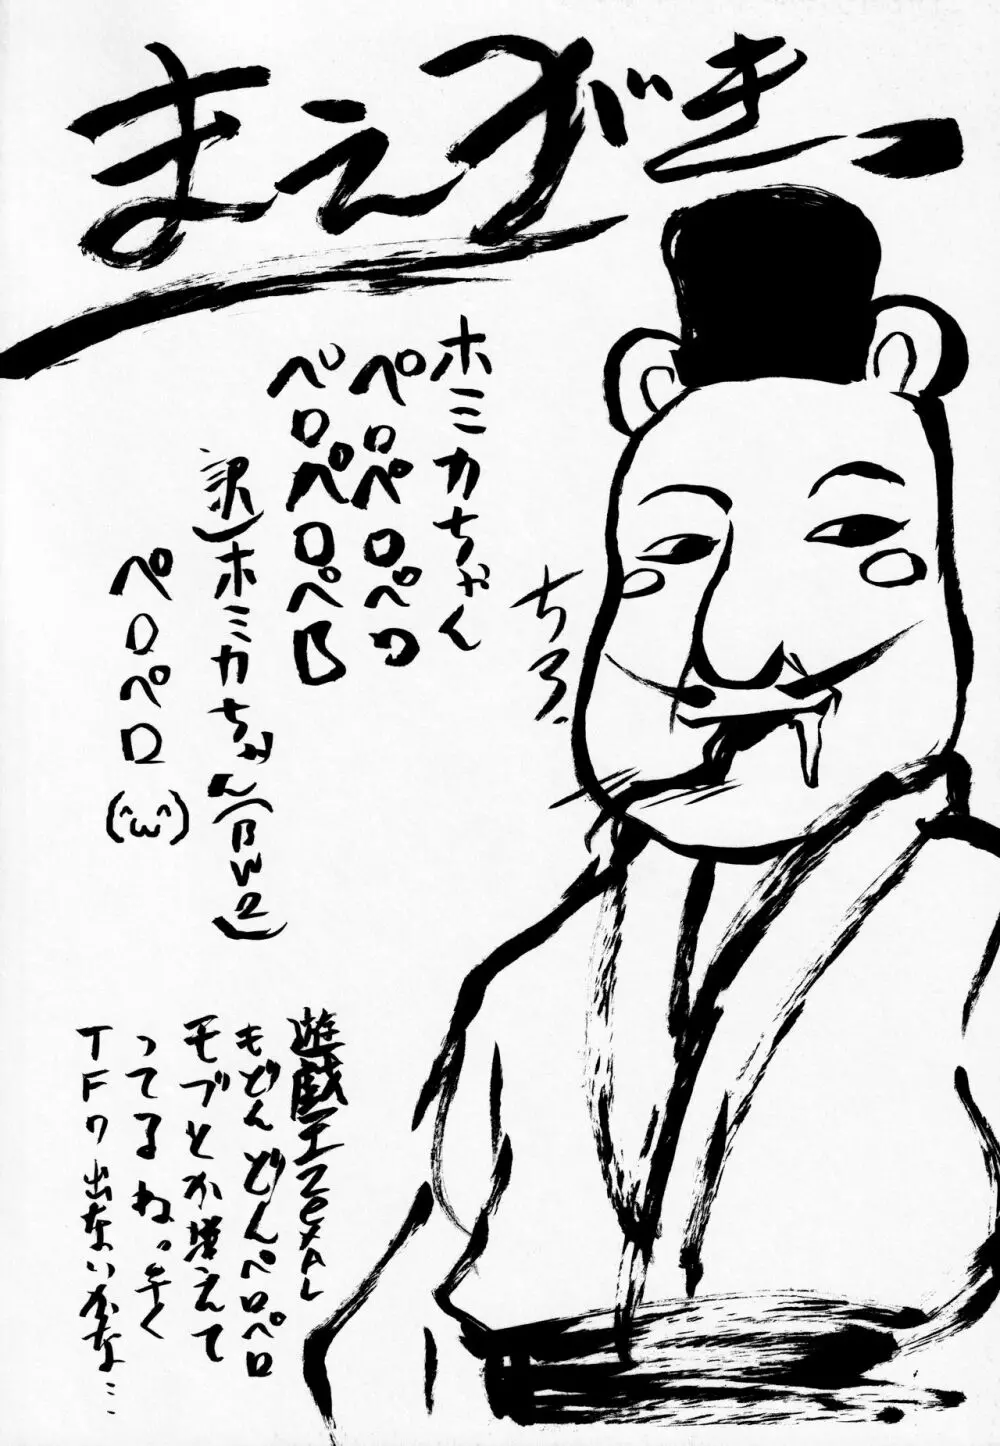 まえがきっ
ホミカちゃん
ペロペロペロ
ペロペロペロ
訳)ホミカちゃん(BW2)
ペロペロ
(^ω^)
ちろ.
遊戯王ZEXAL
もどんどんペロペロ
モブとか増えて
ってるねっ早く
TF7出ないかな…